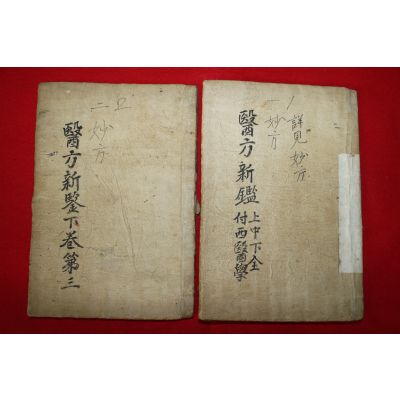 詳見 妙方
一 妙方
醫方新鑑
上中下全
付西醫學
二
妙方
醫方新鑒下卷第三